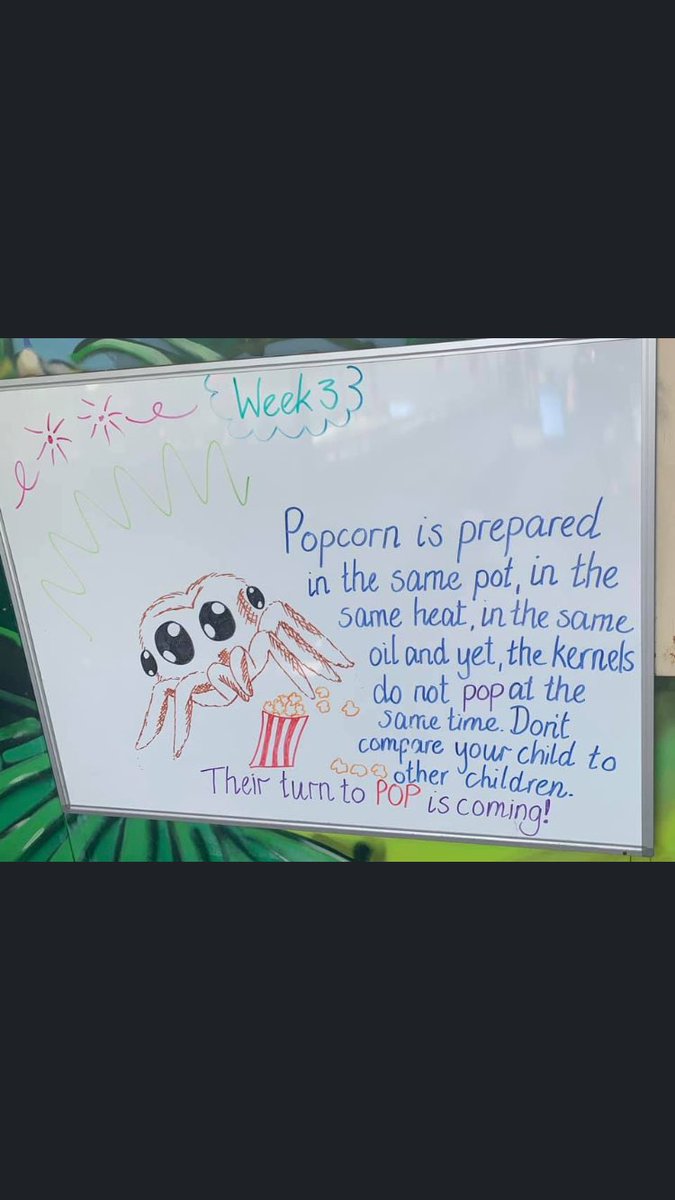 Week 3
Popcorn is prepared
in the same pot, in the
same heat, in the same
oil and yet, the kernels
do not pop at the
same time. Don't
compare your child to
other children.
Their turn to POP is coming!